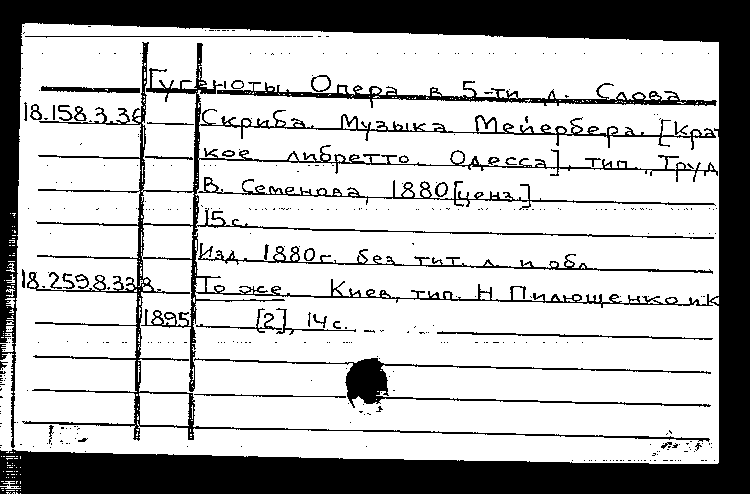 Гугеноты. Опера в 5-ти д. Слова
18.158.3.36 Скриба. Музыка Мейербера. [Крат
кое либретто. Одесса], тип. „Труд
В. Семенова, 1880 [ценз.]
15 с.
Изд. 1880 г. без тит. л. и обл.
18.259.8.338. То же. Киев, тип. Н. Пилющенко и К
1895. [2], 14 с.